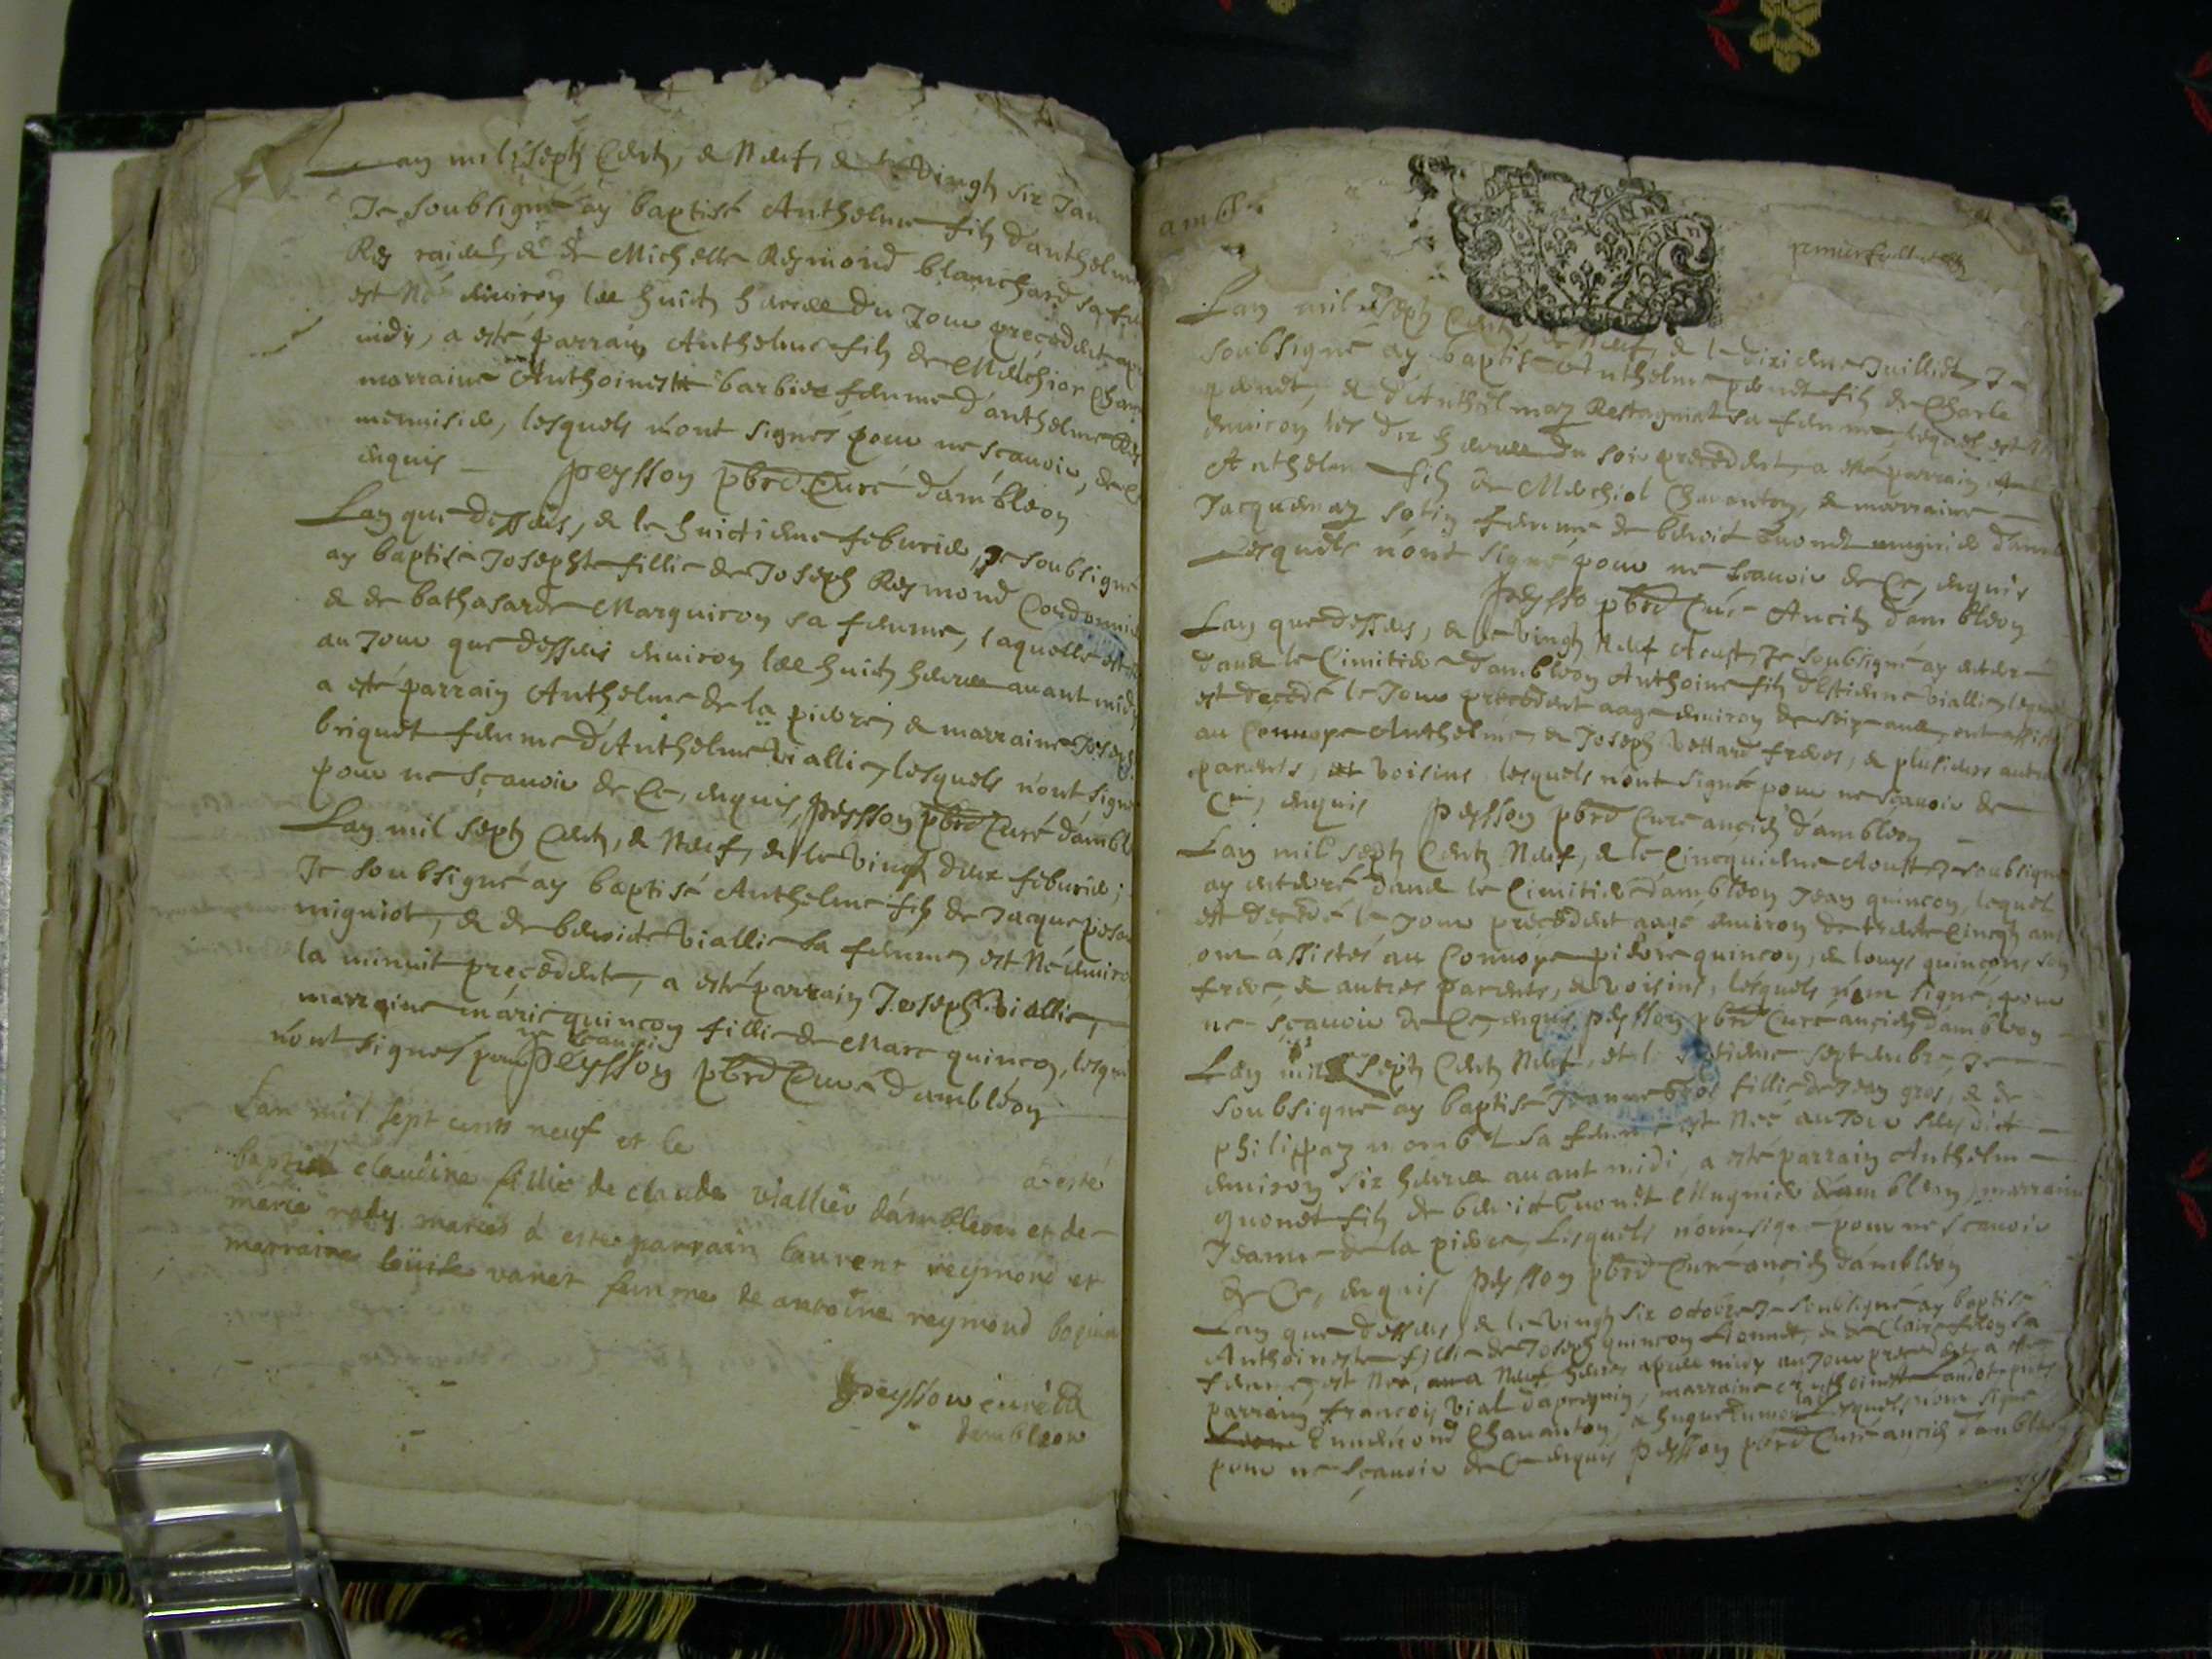 Lan mil sept Cents, & Neuf, & le Vingt six Jan
Je soubsigné ay baptisé Anthelme filz danthelme
Rey & de Michelle Reymond blanchard sa fe
est Né environ les huict heures du Jour precedent apr
midy, a esté parrain Anthelme filz de Melchior Chava
marraine Anthoineste barbier femme danthelme Rey
menuisier, lesquels nont signés pour ne scavoir, de Ce
enquis peysson pbre Curé dambléon
Lan que dessus, & le huictieme feburier, Je soubsigné
ay baptisé Josephte fillie de Joseph Reymond Cordonnier
& de bathasarde Marguiron sa femme, laquelle est
au Jour que dessus environ les huict heures avant midy
a esté parrain Anthelme de la pierre, & marraine Joseph
briquet femme d'Anthelme Viallie, lesquels nont signé
pour ne sçavoir de Ce, enquis, peysson pbre Curé dambl
Lan mil sept Cents, & Neuf, & le Vingt deux feburier;
Je soubsigné ay baptisé Anthelme filz de Jacque
migniot, & de benoite Viallie sa femme, est Né enviro
la minuit precedente, a esté parrain Joseph Viallie,
marraine marie quincon fillie de Marc quincon, lesqu
nont signés pour ne scavoir peysson pbre Curé dambléon
Lan mil sept cents neuf et le
a esté
baptisé claudine fillie de claude viallier dambleon et de
marie rody maries a esté parrain laurent reymond et
marraine louise vanet femme de antoine reymond
peysson curé
dambleon
ambl
Lan mil sept Cents, & Neuf, & le dixieme Juillet, Je
soubsigné ay baptisé Anthelme pernet filz de Charle
pernet, & d'Anthelmaz Restagniat sa femme, lequel est
environ les dix heures du soir precedent, a esté parrain
Anthelme filz de Melchiol Chavanton, & marraine
Jacquemaz sotin femme de benoit
Lesquels nont signé pour ne scavoir de Ce, enquis
peysso pbre Curé Ancien dambléon
Lan que dessus, & le Vingt Neuf Aoust, Je soubsigné ay enterré
dans le Cimitiere dambléon Anthoine filz dEstienne viallie, lequel
est decedé le Jour precedent aagé environ de seize ans, ont assisté
au Convoye Anthelme, & Joseph Vettard freres, & plusieurs autres
parents, & voisins lesquels nont signé pour ne scavoir de
Ce, enquis peysson pbre Curé ancien dambléon
Lan mil sept Cents Neuf, & le Cincquieme Aoust Je soubsigné
ay enterré dans le Cimitiere dambléon Jean quincon, lequel
est decedé le Jour precedent aagé environ de trente Cincq ans
ont assistés au Convoye pierre quincon, & louys quincons son
frere, & autres parents, & voisins, lesquels nont signé, pour
ne sçavoir de Ce, enquis peysson pbre Curé ancien dambléon
Lan mil sept Cents Neuf, et le septieme septembre, Je
soubsigné ay baptisé Jeanne gros fillie de Jean gros, & de
philippaz sa femme est Née au Jour susdict
environ six heures avant midi, a esté parrain Anthelme
filz de benoit Mugnier dambléon, marraine
Jeanne de la pierre, Lesquels nont signé pour ne scavoir
de Ce, enquis peysson pbre Curé ancien dambléon
Lan que dessus, & le Vingt six octobre Je soubsigné ay baptisé
Anthoineste fillie de Joseph quincon Lionnet, & de Claire sa
femme, est Née, Neuf heures apres midy au Jour precedent, a esté
parrain françois Vial, marraine
Chavanton, & lesquels nont signé
pour ne sçavoir de Ce enquis peysson pbre Curé ancien dambléon